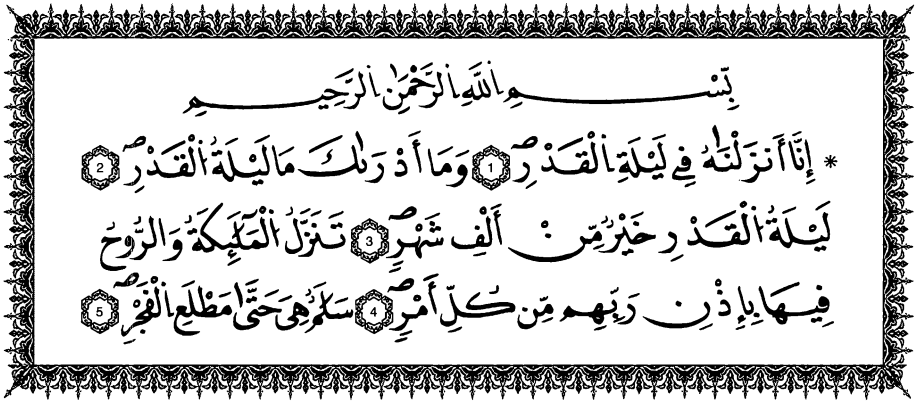 بِّسْمِ اِ۬للَّهِ اِ۬لرَّحْمَٰنِ اِ۬لرَّحِيمِ
* إِنَّا أَنزَلْنَٰهُ فِے لَيْلَةِ اِ۬لْقَدْرِۖ 1 وَمَا أَدْر۪ىٰكَ مَا لَيْلَةُ اُ۬لْقَدْرِۖ 2
لَيْلَةُ اُ۬لْقَدْرِ خَيْرٌ مِّنْ أَلْفِ شَهْرٖۖ 3 تَنَزَّلُ اُ۬لْمَلَٰٓئِكَةُ وَالرُّوحُ
فِيهَا بِإِذْنِ رَبِّهِم مِّن كُلِّ أَمْرٖۖ 4 سَلَٰمٌ هِيَ حَتَّىٰ مَطْلَعِ اِ۬لْفَجْرِۖ 5